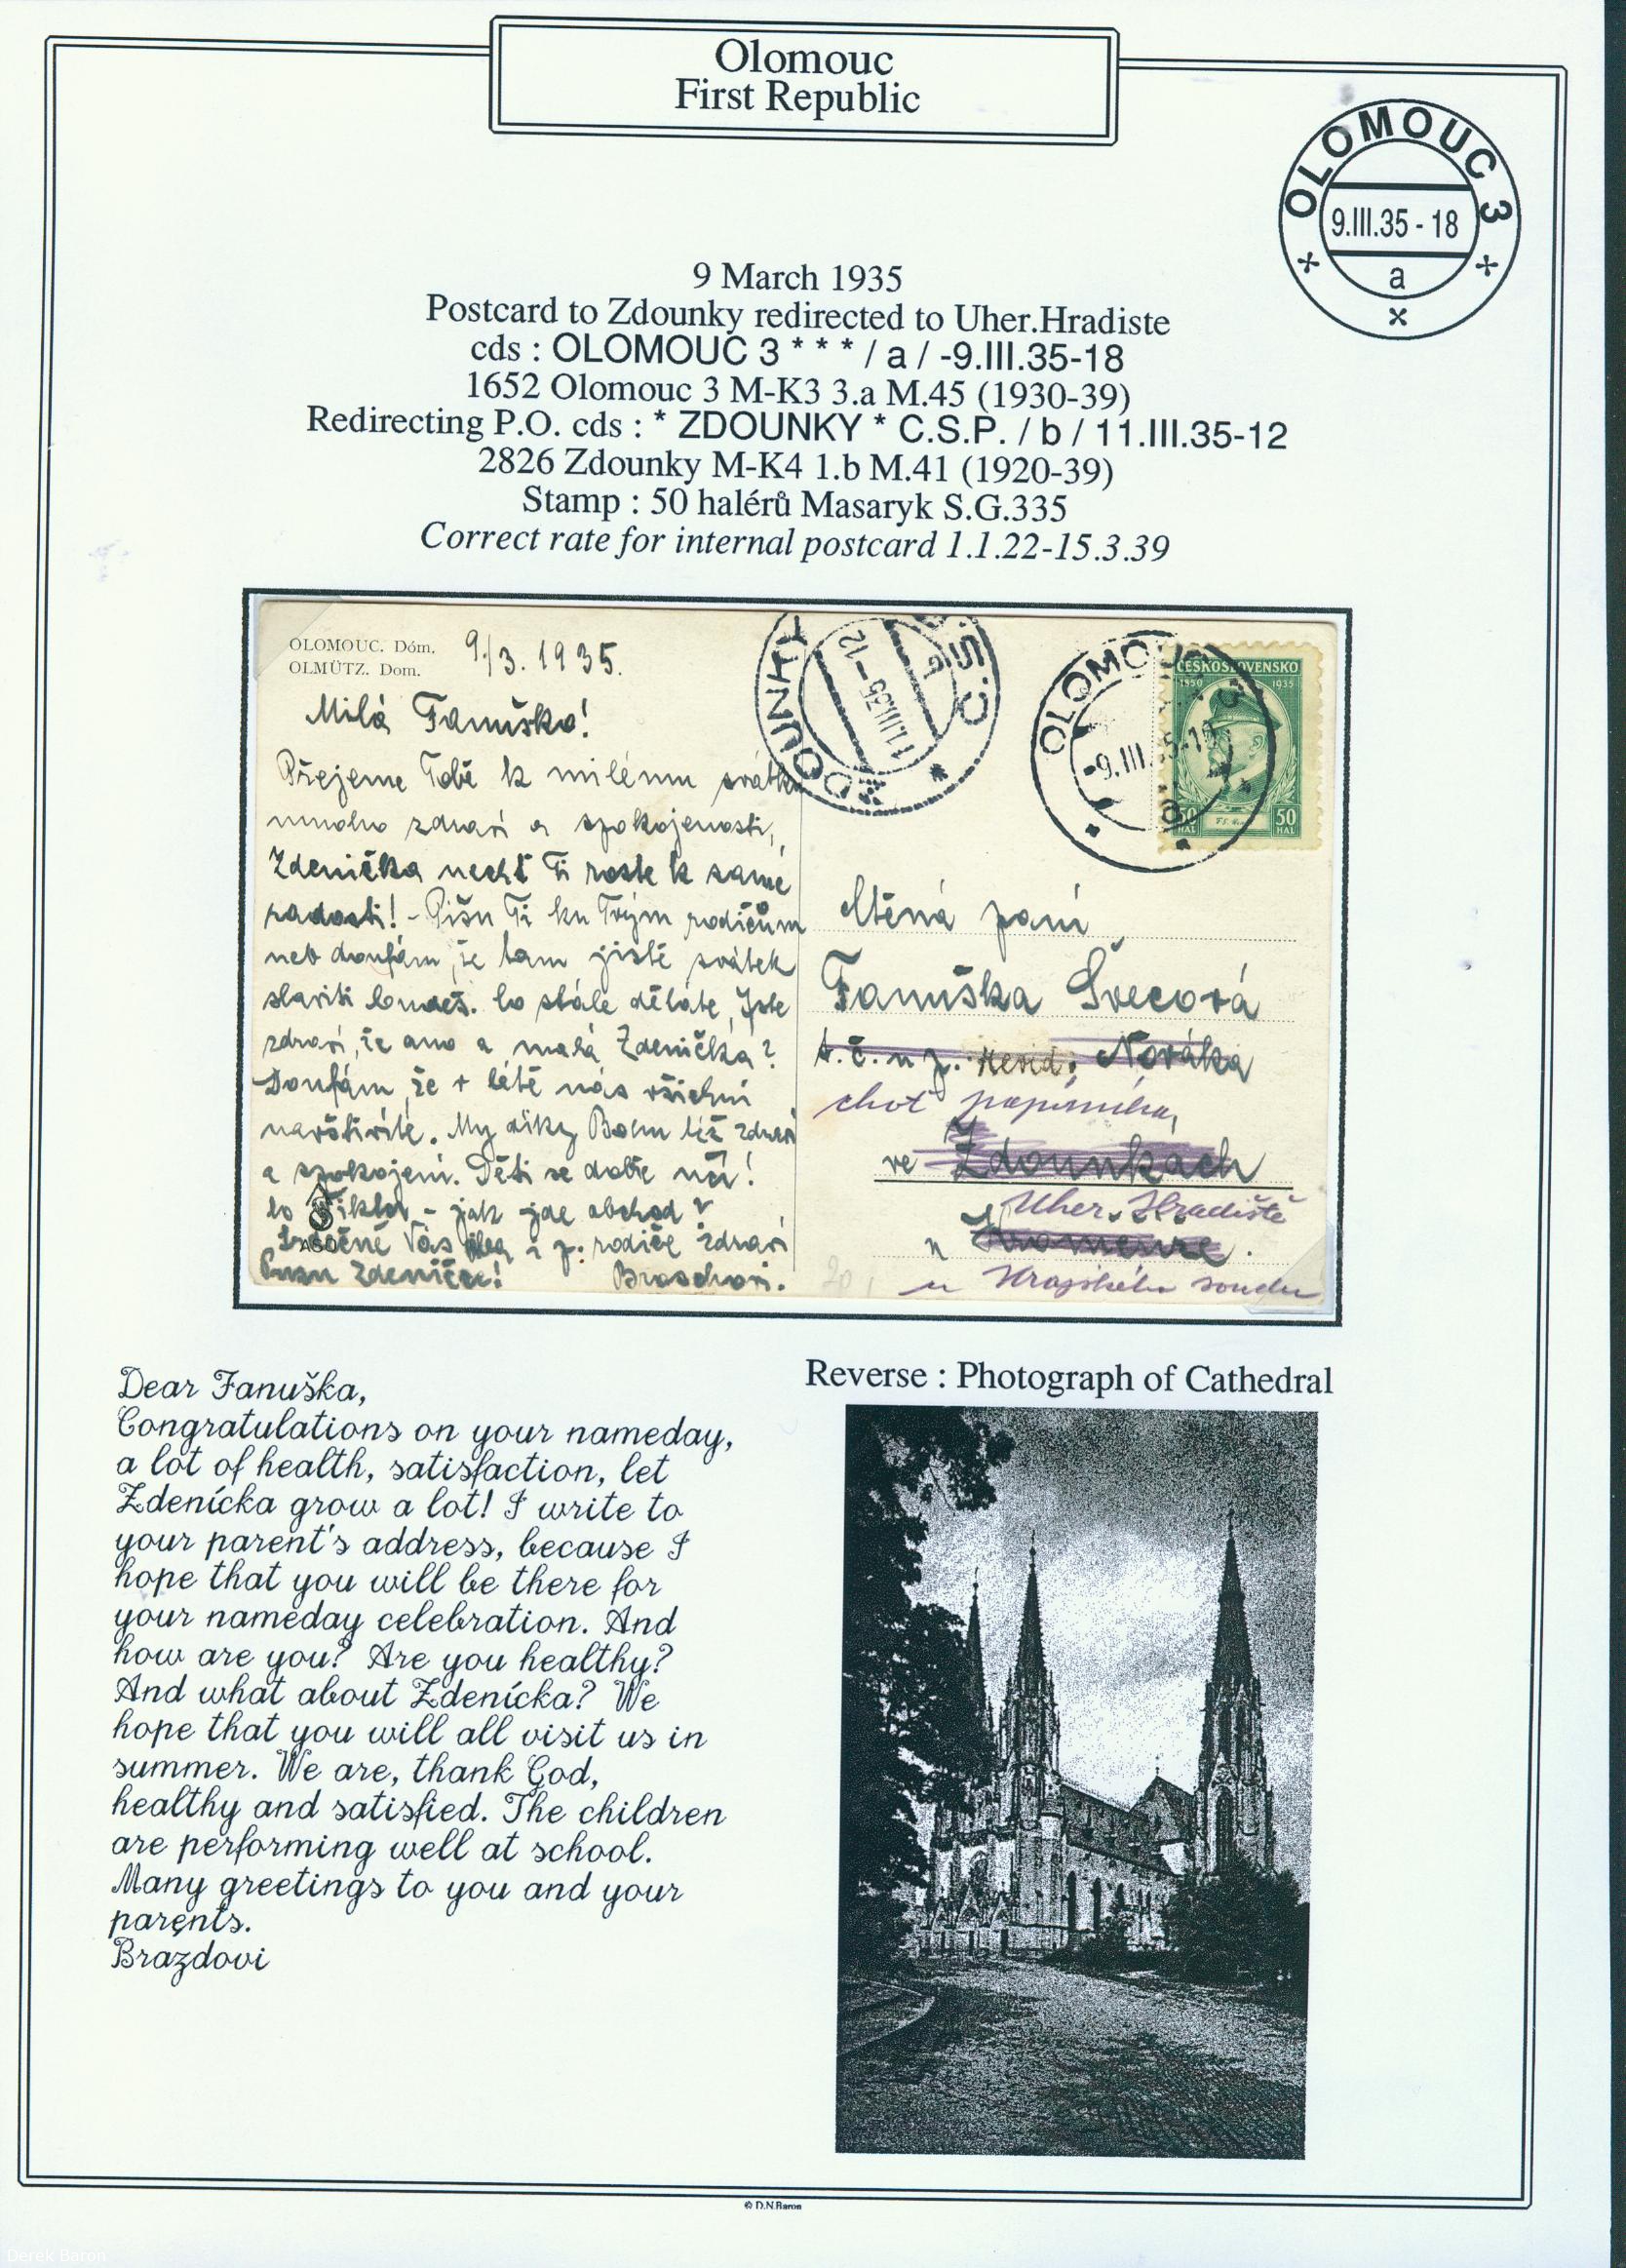 Olomouc
First Republic
OLOMOUC 3
9.III.35 - 18
a
9 March 1935
Postcard to Zdounky redirected to Uher.Hradiste
cds : OLOMOUC 3 * * * / a / -9.III.35-18
1652 Olomouc 3 M-K3 3.a M.45 (1930-39)
Redirecting P.O. cds : * ZDOUNKY * C.S.P. / b / 11.III.35-12
2826 Zdounky M-K4 1.b M.41 (1920-39)
Stamp : 50 halérů Masaryk S.G.335
Correct rate for internal postcard 1.1.22-15.3.39
OLOMOUC. Dóm.
OLMÜTZ. Dom.
9./3. 1935.
Milá Fanuško!
Přejeme Tobě k milému svátku
mnoho zdraví a spokojenosti,
Zdenička nechť Ti roste k samé
radosti! - Píšu Ti ku Tvým rodičům
neb doufám, že tam jistě svátek
slaviti budeš. Co stále děláte, Jste
zdraví, že ano a malá Zdenička?
Doufám, že v létě nás všichni
navštívíte. My díky Bohu též zdraví
a spokojeni. Děti se dobře učí!
Co - jak jde obchod?
Srdečně Vás i p. rodiče zdraví
Pusu Zdeničce!
OUNKY
11.III.35-12
Č.S.
OLOMOUC 3
-9.III.35-18
a
ČESKOSLOVENSKO
1850 1935
50 HAL
50 HAL
Ctěná paní
Fanuška Švecová
t.č. u p. Nováka
choť
ve Zdounkách
Uher. Hradiště
u
u Krajského soudu
Dear Fanuška,
Congratulations on your nameday,
a lot of health, satisfaction, let
Zdenícka grow a lot! I write to
your parent's address, because I
hope that you will be there for
your nameday celebration. And
how are you? Are you healthy?
And what about Zdenícka? We
hope that you will all visit us in
summer. We are, thank God,
healthy and satisfied. The children
are performing well at school.
Many greetings to you and your
parents.
Brazdovi
Reverse : Photograph of Cathedral
© D.N.Baron
Derek Baron